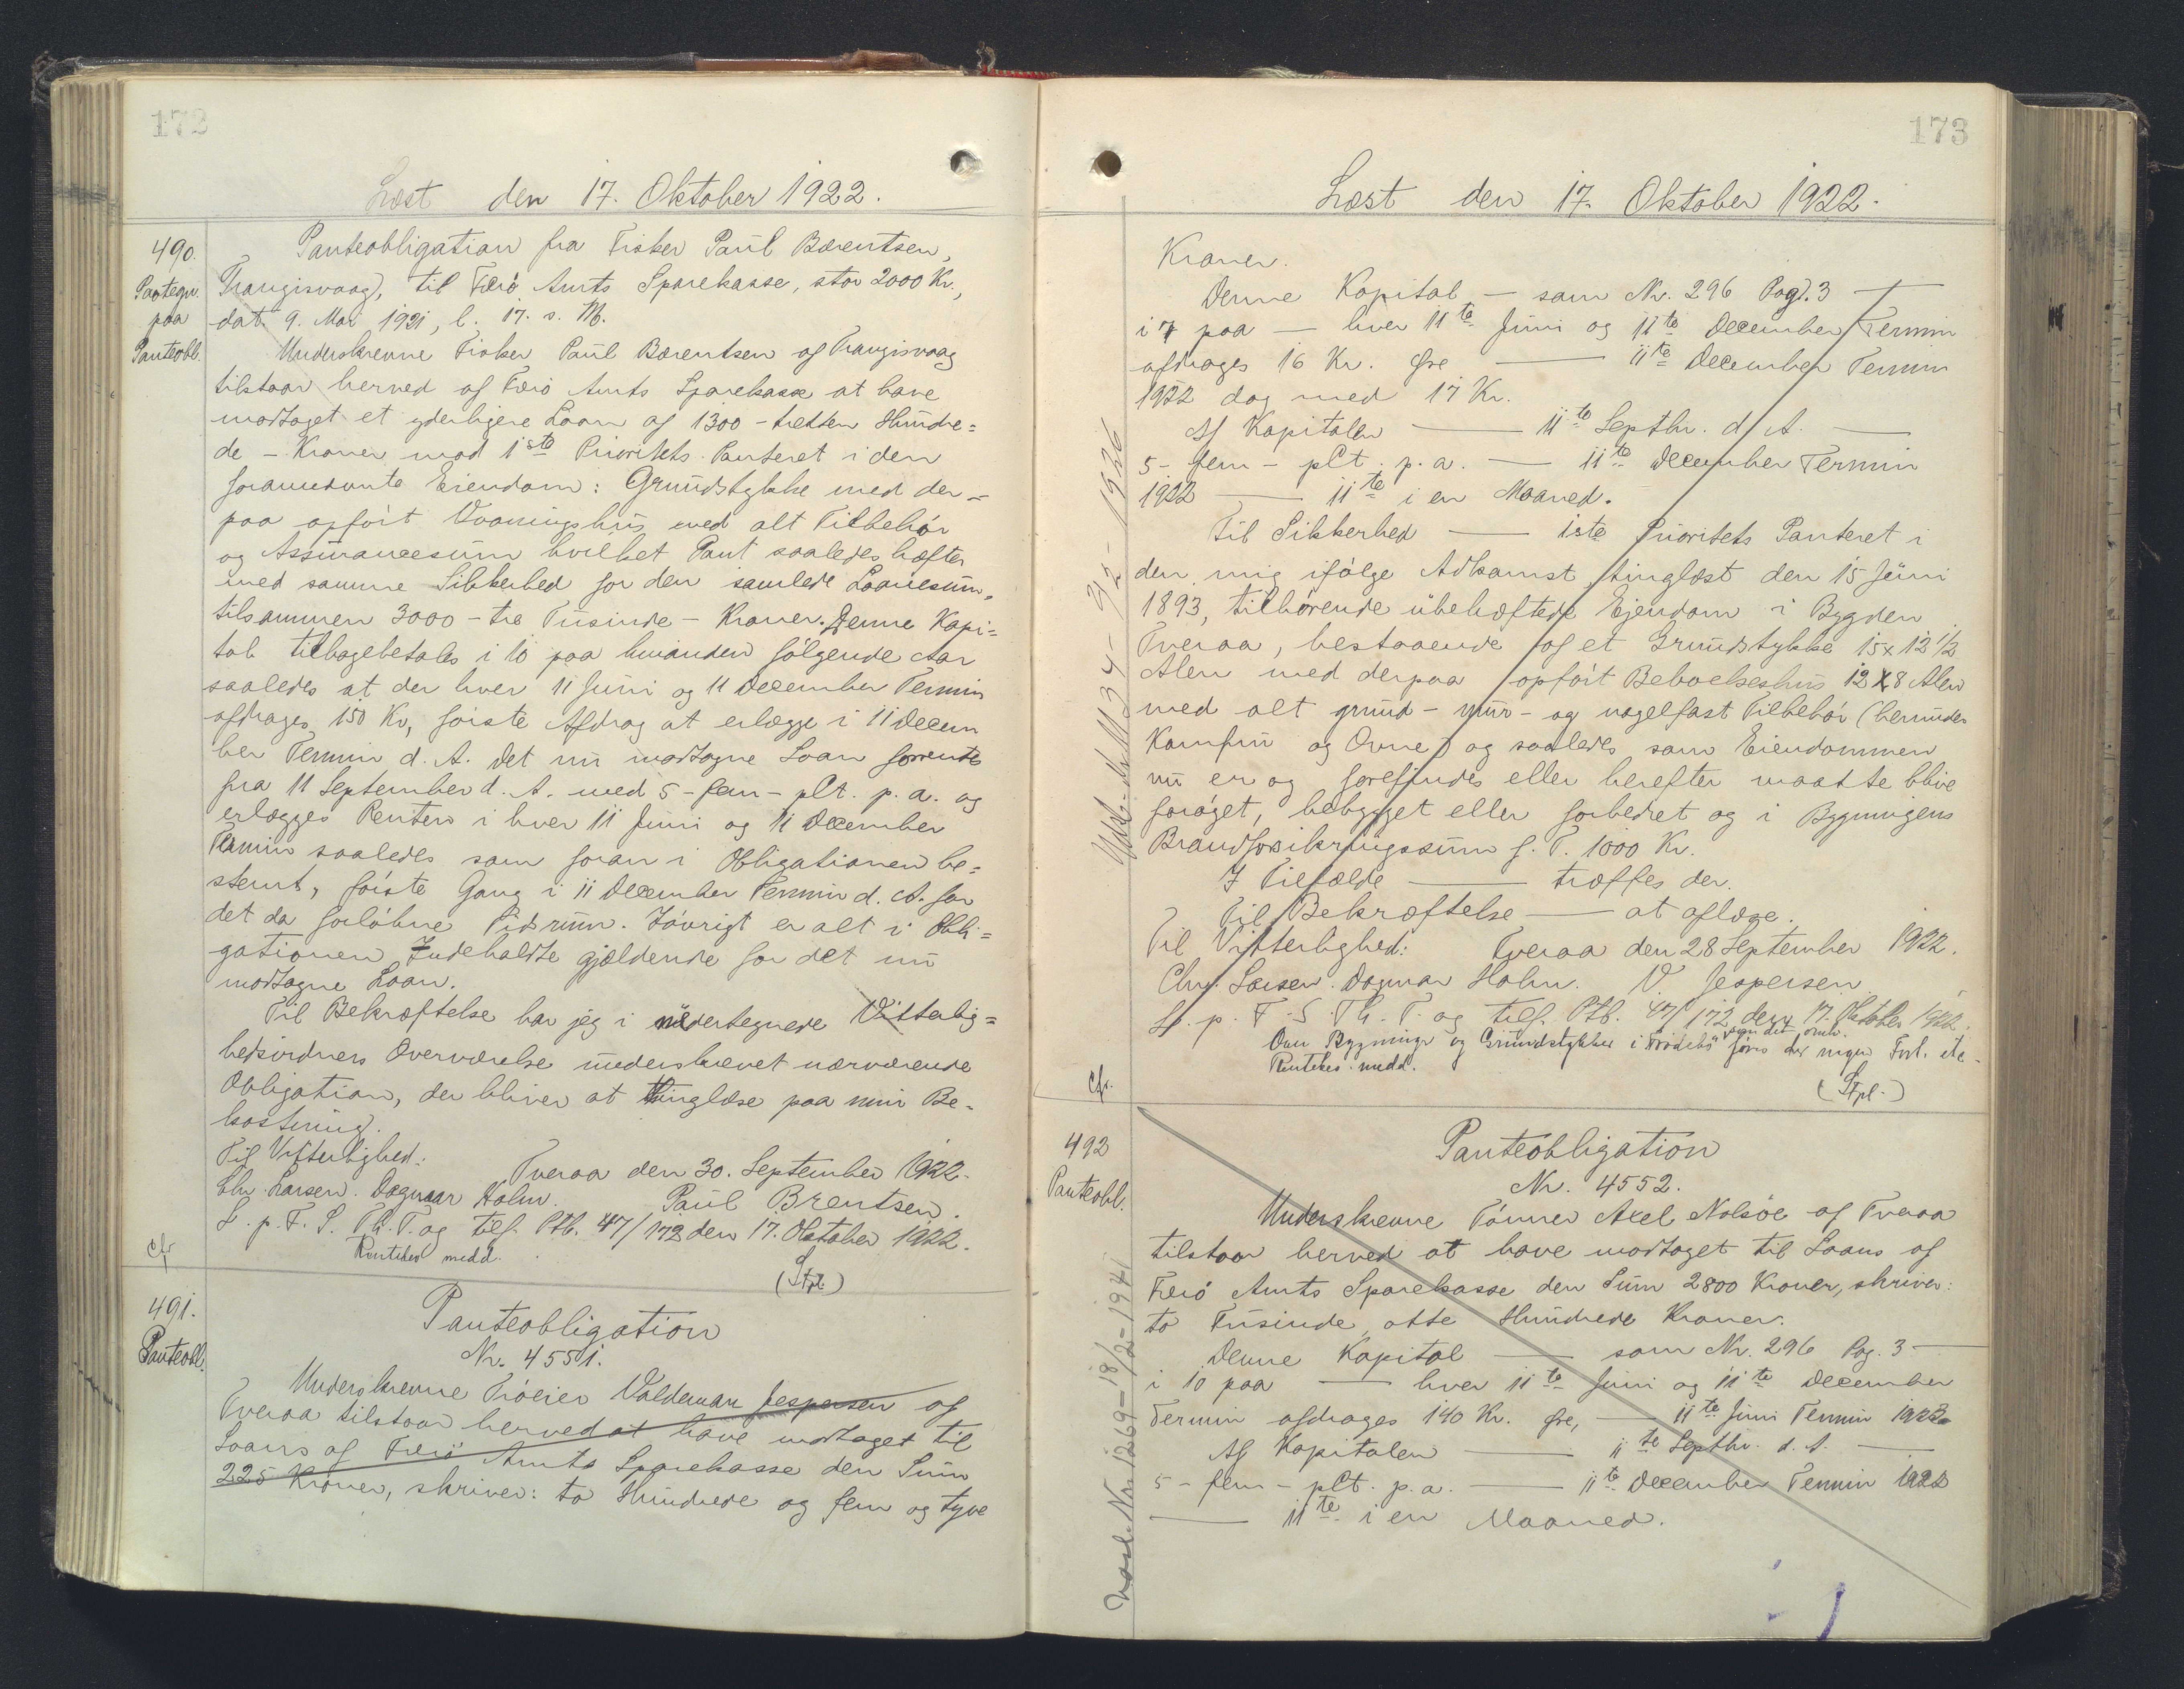 172
Læst den 17. Oktober 1922.
490.
Pantegn.
paa
Panteobl.
Panteobligation fra Fisker Paul Bærentsen,
Trangisvaag, til Færö Amts Sparekasse, stor 2000 Kr.,
dat. 9. Mai 1921, l. 17. s. M.
Underskrevne Fisker Paul Bærentsen af Trangisvaag
tilstaar herved af Færö Amts Sparekasse at have
modtaget et yderligere Laan af 1300 - tretten Hundre=
de - Kroner mod 1ste Prioritets Panteret i den
forannævnte Eiendom: Grundstykke med der=
paa opført Vaaningshus med alt Tilbehör
og Assurancesum hvilket Pant saaledes hæfter
med samme Sikkerhed for den samlede Laanesum,
tilsammen 3000 - tre Tusinde - Kroner. Denne Kapi=
tal tilbagebetales i 10 paa hinanden fölgende Aar
saaledes at der hver 11 Juni og 11 December Termin
afdrages 150 Kr, förste Afdrag at erlægge i 11 Decem
ber Termin d. A. Det nu modtagne Laan forrentes
fra 11 September d. A. med 5 - fem - pCt. p. a. og
erlægges Renten i hver 11 Juni og 11 December
Termin saaledes som foran i Obligationen be=
stemt, förste Gang i 11 December Termin d. A. for
det da forløbne Tidsrum. Iövrigt er alt i Obli=
gationen Indeholdte gjældende for det nu
modtagne Laan.
Til Bekræftelse har jeg i undertegnede Vitterlig=
hedsvidners Overværelse underskrevet nærværende
Obligation, der bliver at tinglæse paa min Be=
kostning.
Til Vitterlighed: Tveraa den 30. September 1922.
Chr. Larsen. Dagmar Holm. Paul Brentsen.
L. p. F. S. Th. T. og tilf. Ptb. 47/172 den 17. Oktober 1922.
Rentekes medd.
(Stpl.)
cfr
491.
Panteobl.
Panteobligation
Nr. 4551.
Underskrevne Tröeier Valdemar Jespersen af
Tveraa tilstaar herved at have modtaget til
Laans af Færö Amts Sparekasse den Sum
225 Kroner, skriver: to Hundrede og fem og tyve
173
Læst den 17. Oktober 1922.
Kroner.
Denne Kapital — som Nr. 296 Pag. 3 —
i 7 paa — hver 11te Juni og 11te December Termin
afdrages 16 Kr. Øre — 11te December Termin
1922 dog med 17 Kr.
Af Kapitalen — 11te Septbr. d. A. —
5 - fem - pCt. p. a. — 11te December Termin
1922 — 11te i en Maaned.
Til Sikkerhed — 1ste Prioritets Panteret i
den mig ifölge Adkomst tinglæst den 15 Juni
1893, tilhörende übehæftede Ejendom i Bygden
Tveraa, bestaaende af et Grundstykke 15 x 12 1/2
Alen med derpaa opfört Beboelseshus 12 x 8 Alen
med alt grund- mur- og nagelfast Tilbehör (herunder
Komfur og Ovne) og saaledes som Eiendommen
nu er og forefindes eller herefter maatte blive
foröget, bebygget eller forbedret og i Bygningens
Brandforsikringssum f. T. 1000 Kr.
I Tilfælde — træffes der.
Til Bekræftelse — at aflæse.
Til Vitterlighed: Tveraa den 28 September 1922.
Chr. Larsen. Dagmar Holm. V. Jespersen
L. p. F. S. Th. T. og tilf. Ptb. 47/172 den 17. Oktober 1922.
Om Bygninger og Grundstykker i
Rentekes. medd.
(Stpl.)
cfr.
492
Panteobl.
Panteobligation
Nr. 4552.
Underskrevne Tömrer Axel Nolsöe af Tveraa
tilstaar herved at have modtaget til Laans af
Færö Amts Sparekasse den Sum 2800 Kroner, skriver:
to Tusinde, otte Hundrede Kroner.
Denne Kapital — som Nr. 296 Pag. 3 —
i 10 paa — hver 11te Juni og 11te December
Termin afdrages 140 Kr. Øre, — 11te Juni Termin 1923
Af Kapitalen — 11te Septbr. d. A. —
5 - fem - pCt. p. a. — 11te December Termin 1922
— 11te i en Maaned.